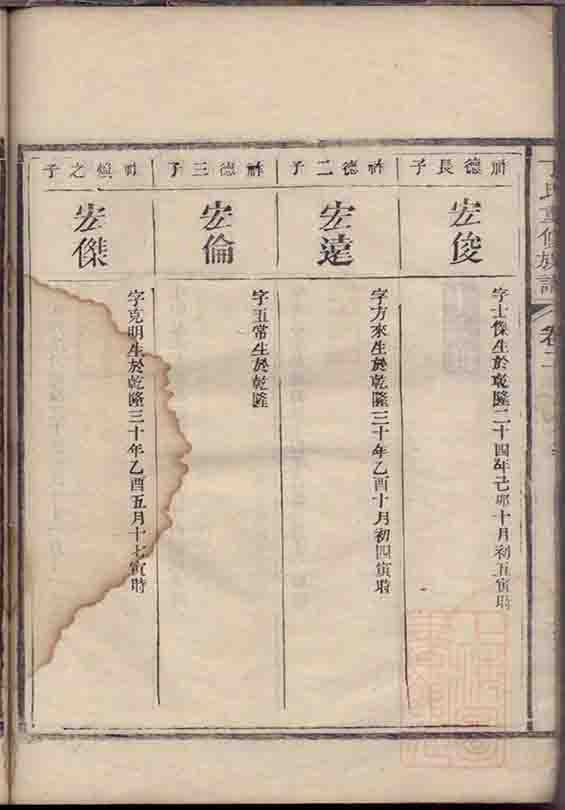 氏重修族譜 卷二
祉德長子
宏俊
字士傑生於乾隆二十四年己卯十月初五寅時
祉德二子
宏遠
字方來生於乾隆三十年乙酉十月初四寅時
祉德三子
宏倫
字五常生於乾隆
祉煥之子
宏傑
字克明生於乾隆三十年乙酉五月十七寅時